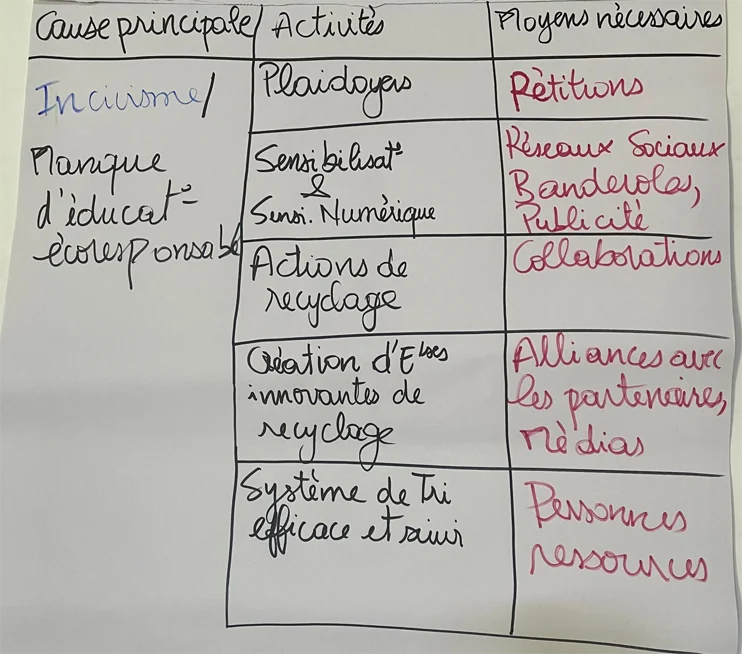 Cause principale/
Activités
Moyens nécessaires
Incivisme/
Manque
d'éducat°-
écoresponsable
Plaidoyers
Pétitions
Sensibilisat°
&
Sensi. Numérique
Réseaux Sociaux
Banderoles,
Publicité
Actions de
recyclage
Collaborations
Création d'Eses
innovantes de
recyclage
Alliances avec
les partenaires,
médias
Système de Tri
efficace et suivi
Personnes
ressources